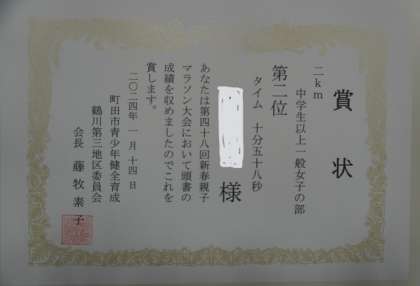 賞状
二km
中学生以上一般女子の部
第二位
タイム 十分五十八秒
様
あなたは第四十八回新春親子
マラソン大会において頭書の
成績を収めましたのでこれを
賞します。
二〇二四年 一月 十四日
町田市青少年健全育成
鶴川第三地区委員会
会長 藤牧素子